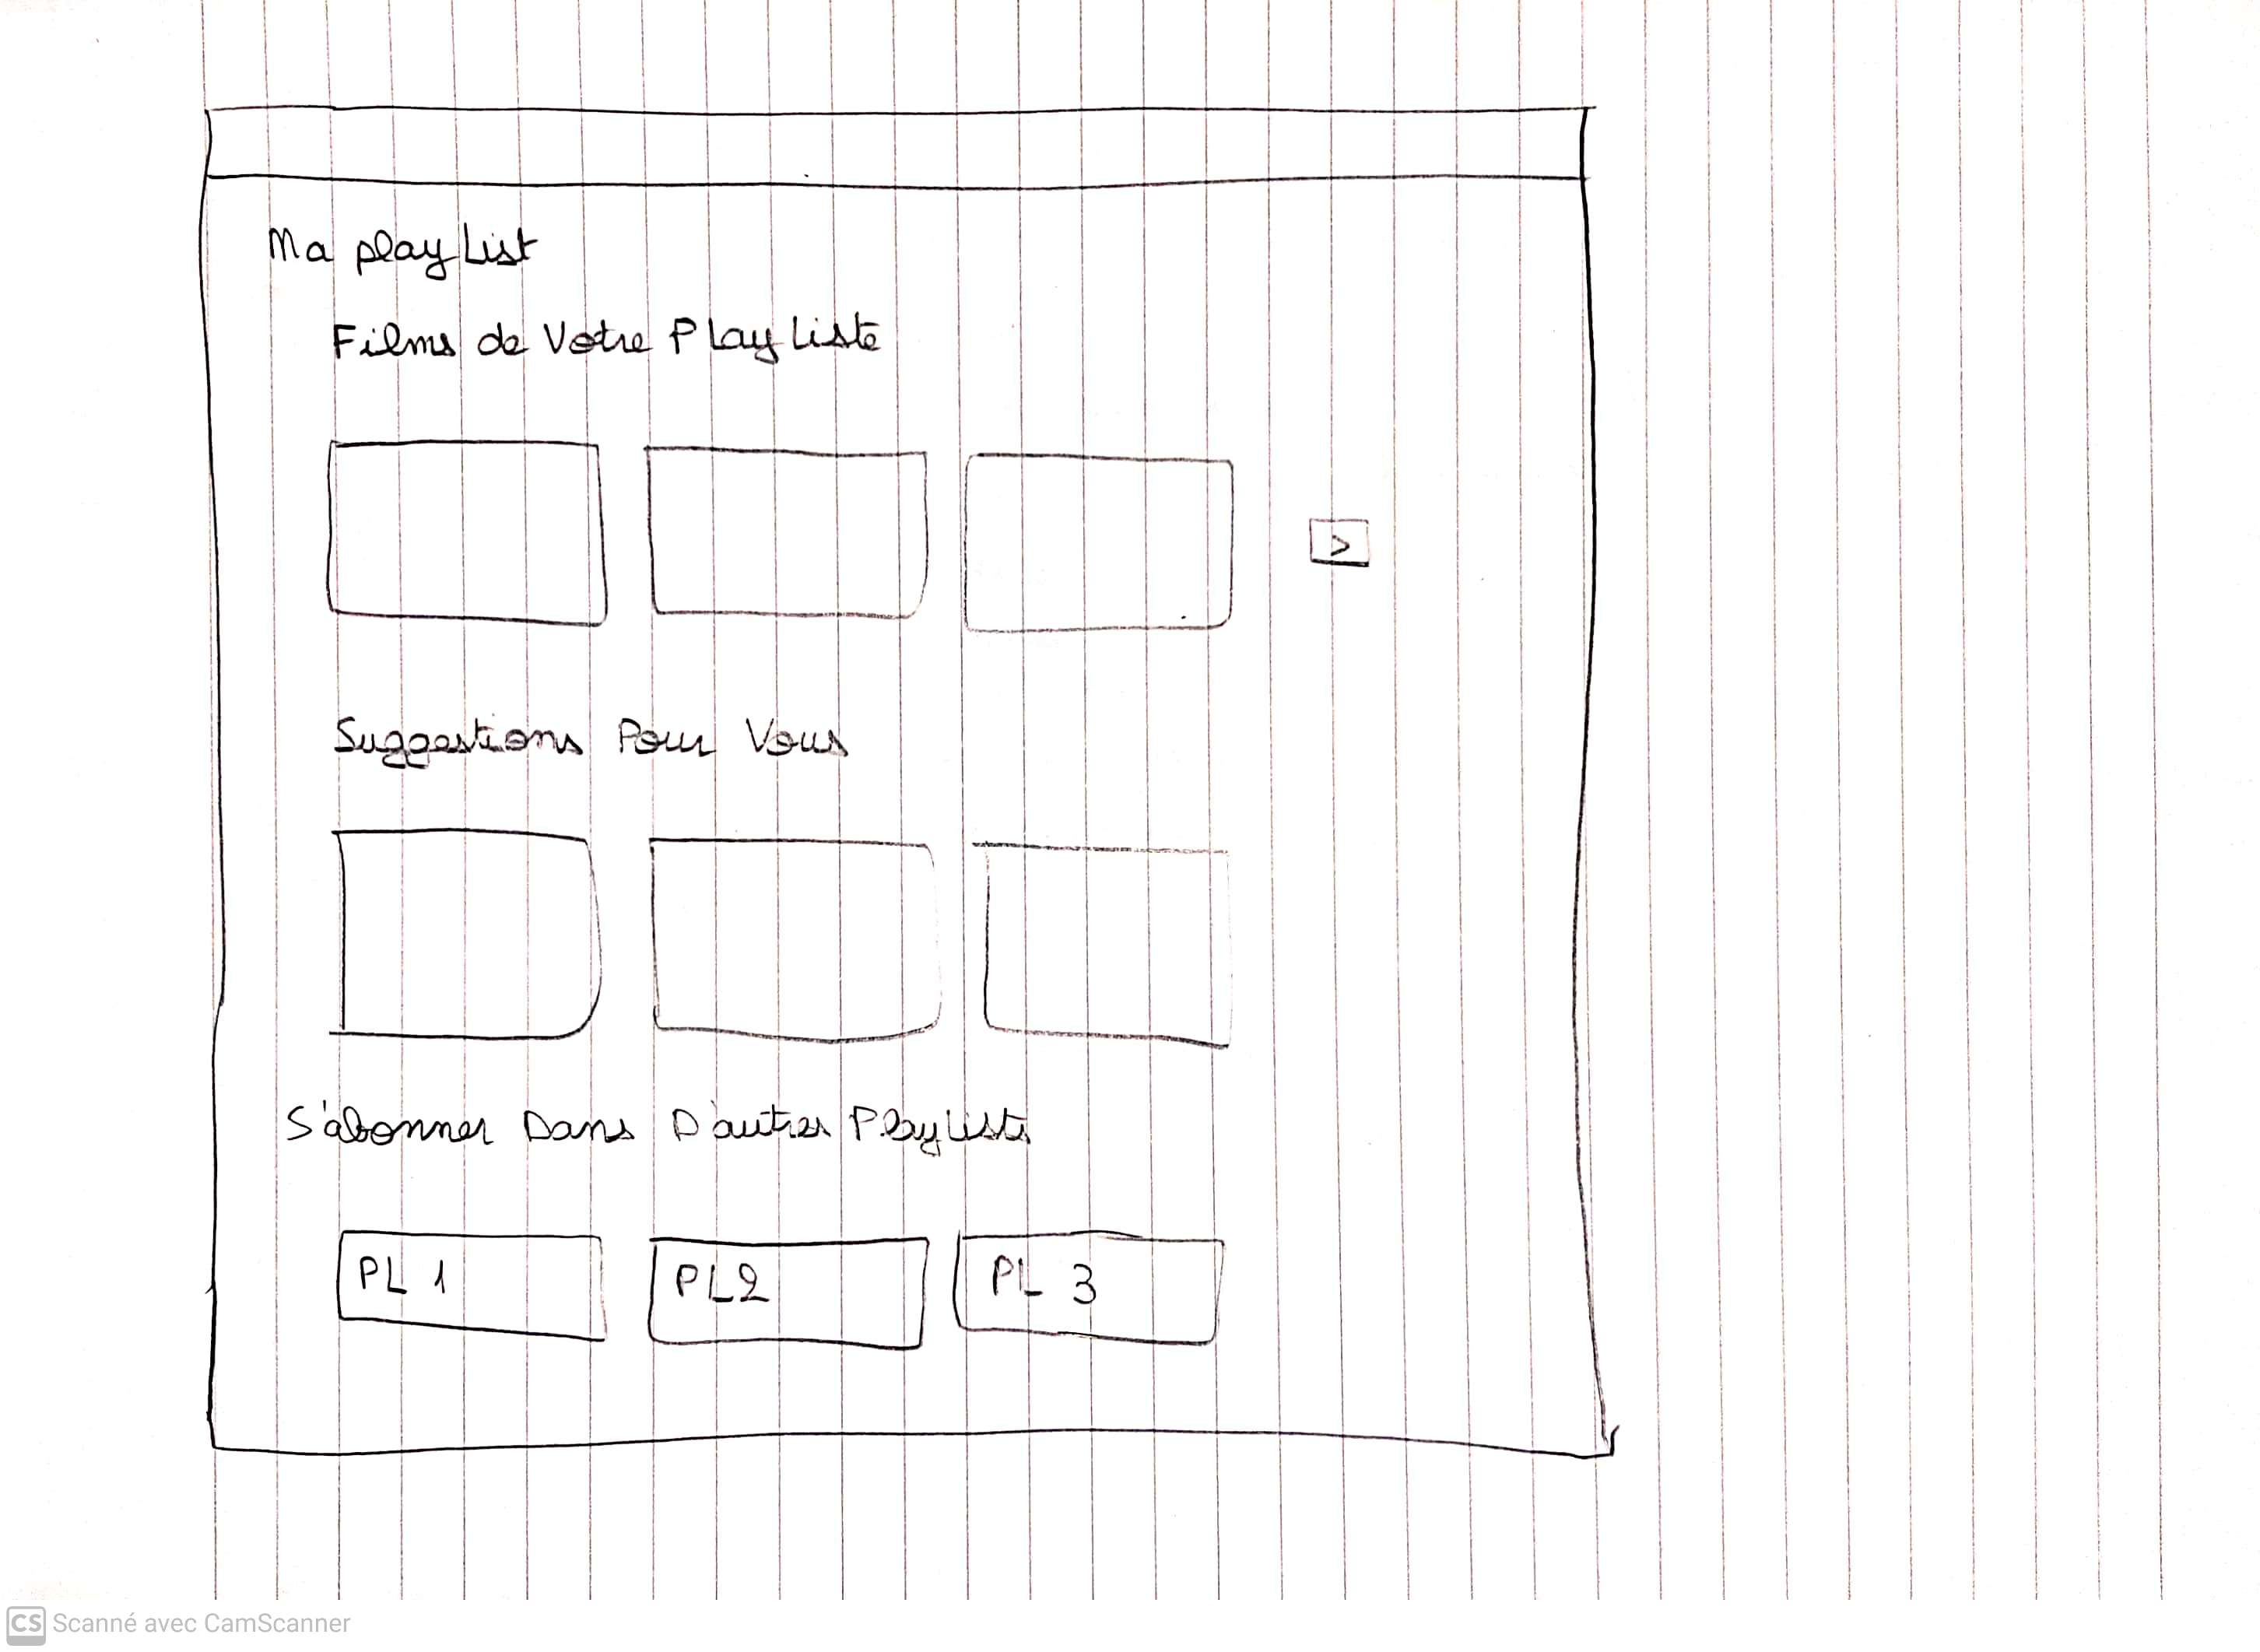 Ma playList
Films de Votre PlayListe
>
Suggestions Pour Vous
S'abonner Dans D'autres PlayListe
PL 1
PL2
PL 3
CS Scanné avec CamScanner